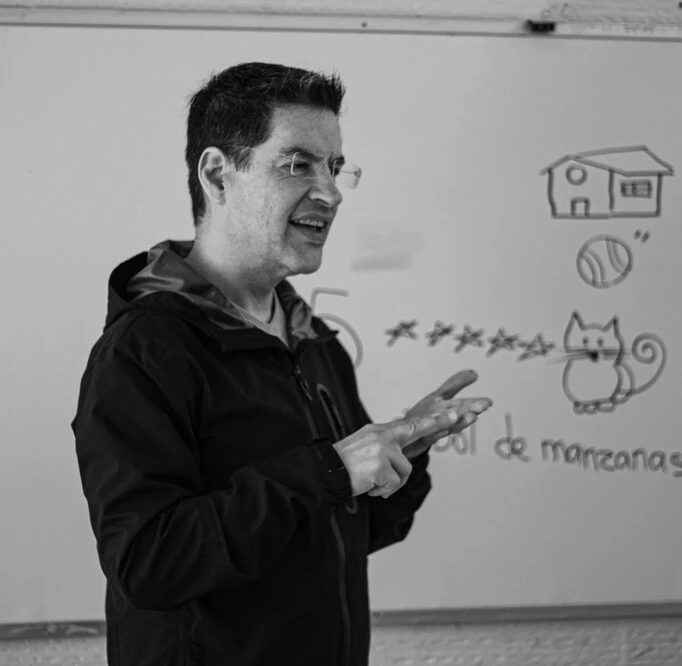 5
de manzanas